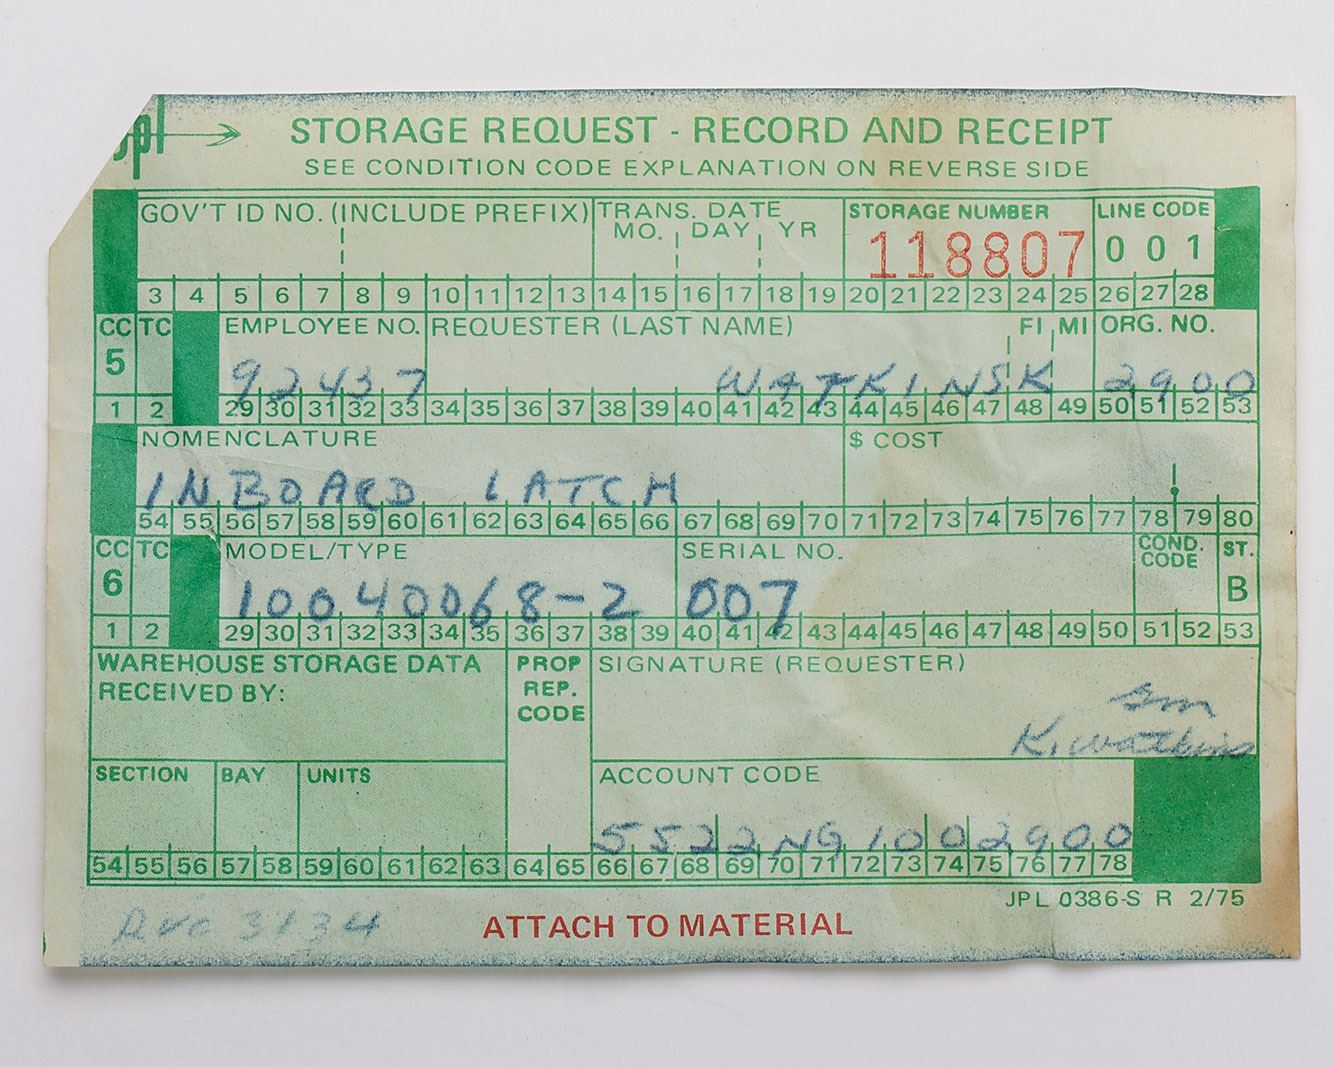 jpl STORAGE REQUEST - RECORD AND RECEIPT
SEE CONDITION CODE EXPLANATION ON REVERSE SIDE
GOV'T ID NO. (INCLUDE PREFIX) TRANS. DATE STORAGE NUMBER LINE CODE
MO. DAY YR 118807 001
3 4 5 6 7 8 9 10 11 12 13 14 15 16 17 18 19 20 21 22 23 24 25 26 27 28
CC TC EMPLOYEE NO. REQUESTER (LAST NAME) FI MI ORG. NO.
5 92437 WATKINSK 2900
1 2 29 30 31 32 33 34 35 36 37 38 39 40 41 42 43 44 45 46 47 48 49 50 51 52 53
NOMENCLATURE $ COST
INBOARD LATCH
54 55 56 57 58 59 60 61 62 63 64 65 66 67 68 69 70 71 72 73 74 75 76 77 78 79 80
CC TC MODEL/TYPE SERIAL NO. COND. CODE ST.
6 10040068-2 007 B
1 2 29 30 31 32 33 34 35 36 37 38 39 40 41 42 43 44 45 46 47 48 49 50 51 52 53
WAREHOUSE STORAGE DATA PROP SIGNATURE (REQUESTER)
RECEIVED BY: REP.
CODE
K. Watkins
SECTION BAY UNITS ACCOUNT CODE
5522NG1002900
54 55 56 57 58 59 60 61 62 63 64 65 66 67 68 69 70 71 72 73 74 75 76 77 78
JPL 0386-S R 2/75
3134 ATTACH TO MATERIAL